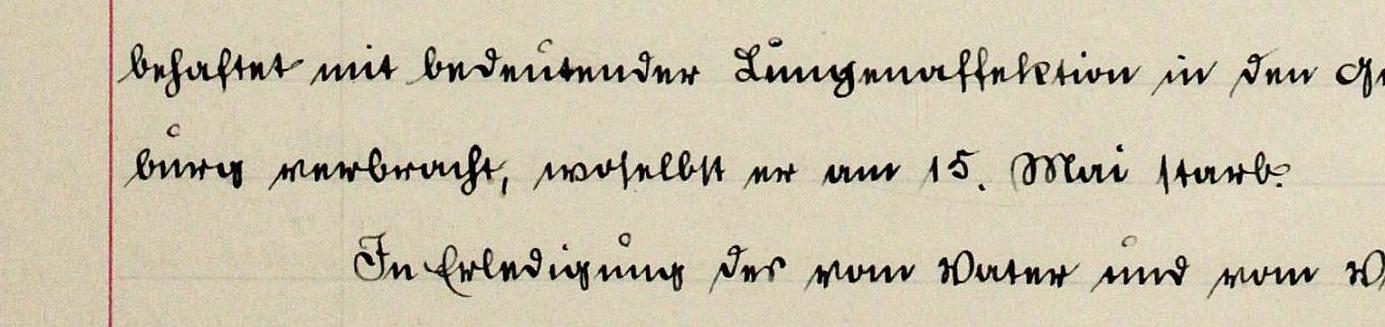 behaftet mit bedeutender Lungenaffektion in den
burg verbracht, woselbst er am 15. Mai starb.
In Erledigung des vom Vater und vom